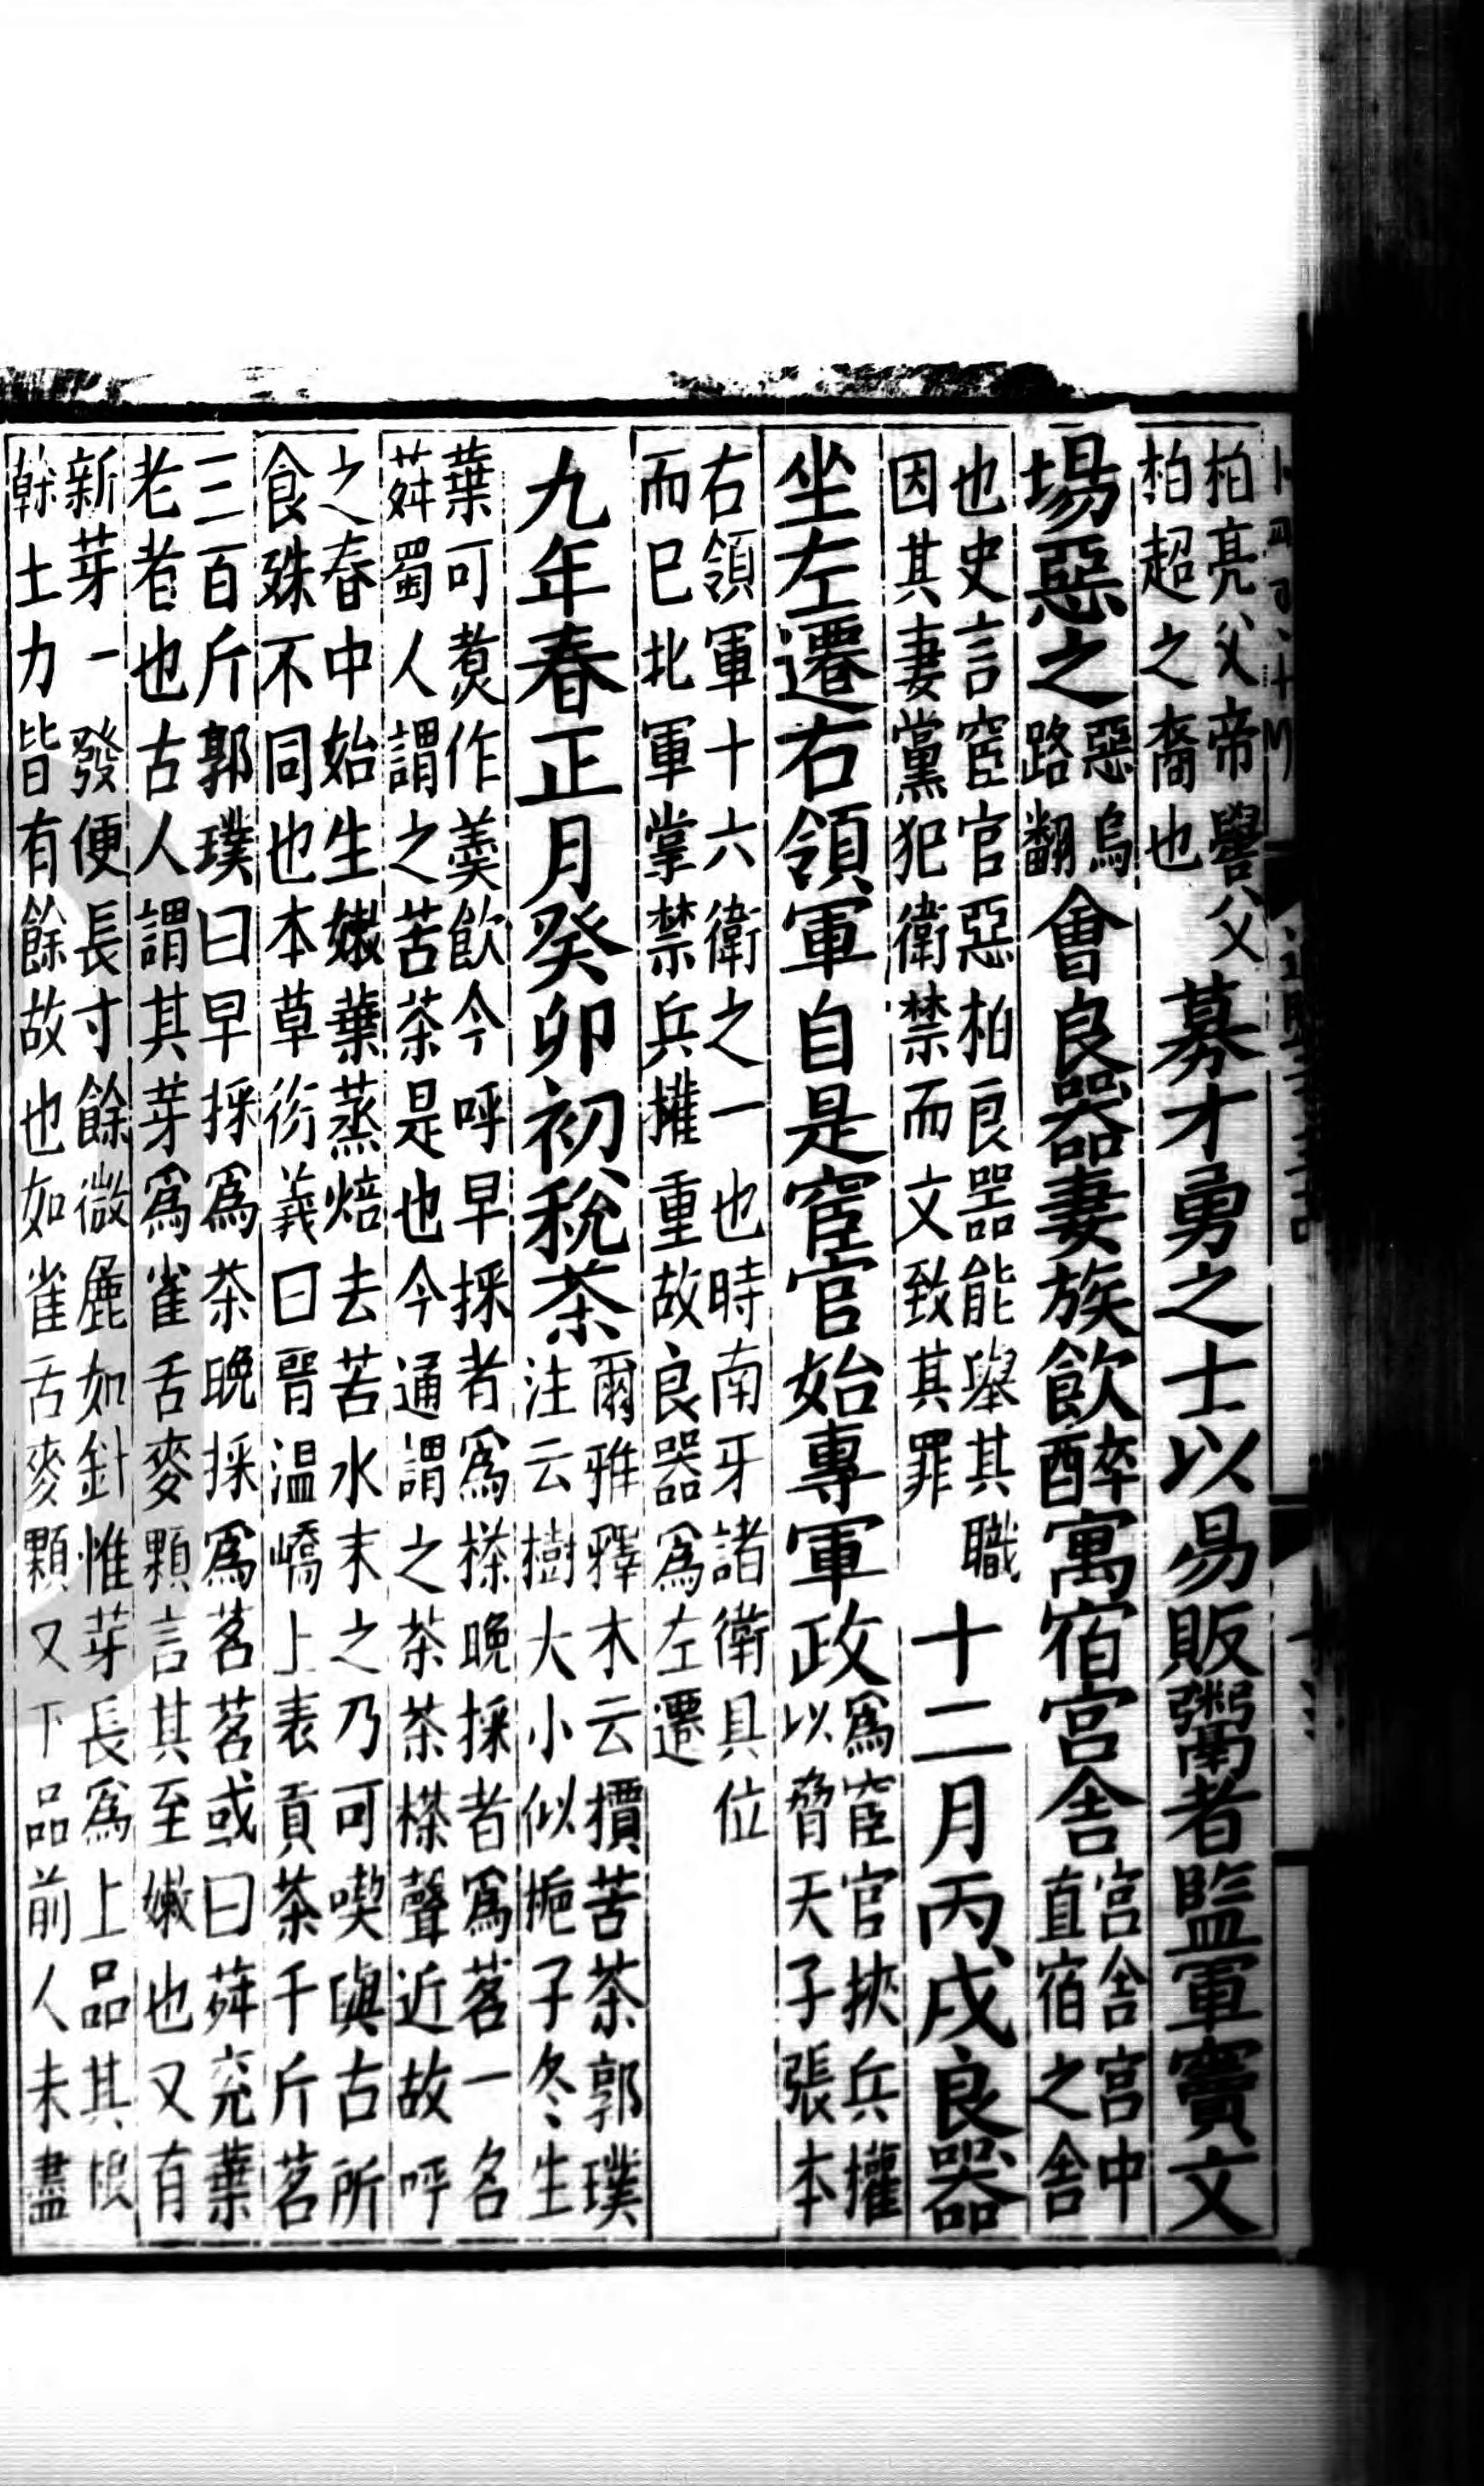 柏亮父父帝嚳父
柏超之裔也
募才勇之士以易販鬻者監軍竇文
場惡之
惡烏
路翻
會良器妻族飲醉寓宿宫舍
宫舍宫中
直宿之舍
也史言宦官惡柏良器能舉其職
因其妻黨犯衛禁而文致其罪
十二月丙戌良器
坐左遷右領軍自是宦官始專軍政
爲宦官挾兵權
以脅天子張本
右領軍十六衛之一也時南牙諸衛具位
而巳北軍掌禁兵權重故良器爲左遷
九年春正月癸卯初税茶
爾雅釋木云檟苦荼郭璞
注云樹大小似梔子冬生
葉可煑作羮飲今呼早採者爲㯓晚採者爲茗一名
荈蜀人謂之苦茶是也今通謂之茶茶㯓聲近故呼
之春中始生嫩葉蒸焙去苦水末之乃可喫與古所
食殊不同也本草衍義曰晉温嶠上表貢茶千斤茗
三百斤郭璞曰早採爲茶晚採爲茗茗或曰荈㒸葉
老者也古人謂其芽爲雀舌麥顆言其至嫩也又有
新芽一發便長寸餘微麄如針惟芽長爲上品其根
幹土力皆有餘故也如雀舌麥顆又下品前人未盡